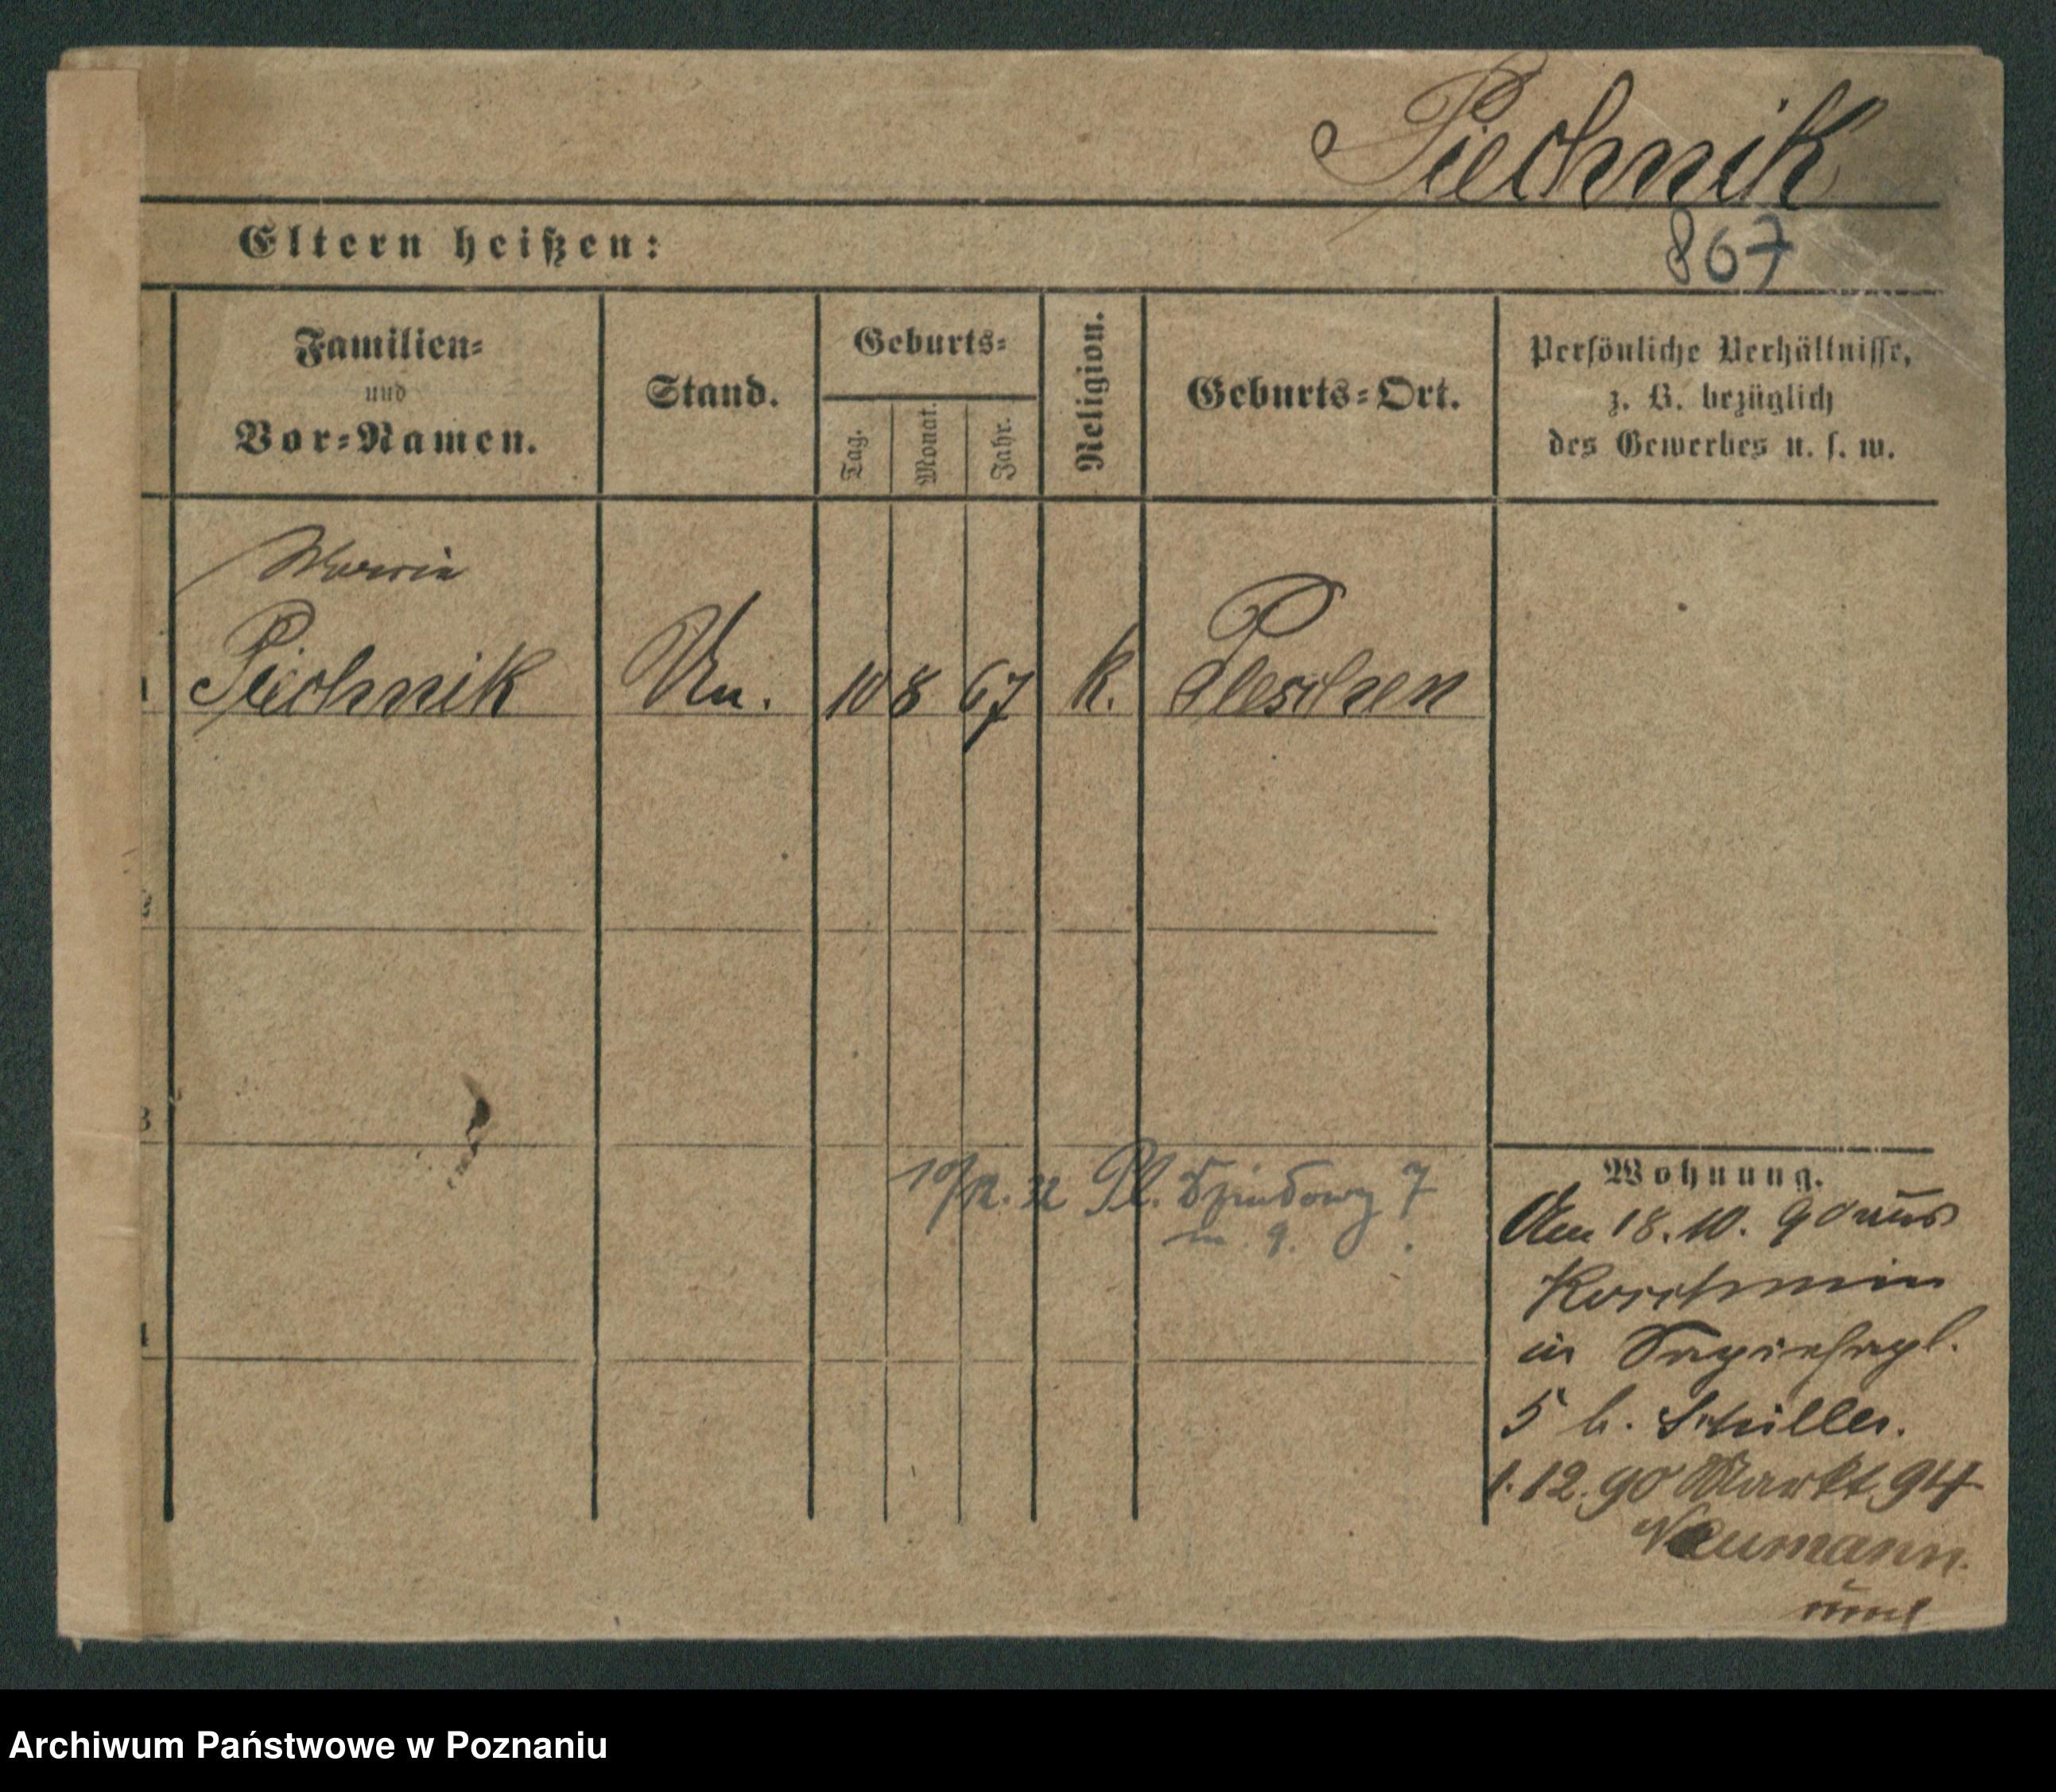 Piechnik
867
Eltern heißen:
Familien=
und
Vor=Namen.
Stand.
Geburts=
Tag.
Monat.
Jahr.
Religion.
Geburts=Ort.
Persönliche Verhältnisse,
z. B. bezüglich
des Gewerbes u. s. w.
Maria
Piechnik
Un.
10
8
67
k.
Pleschen
3
4
10/12. 32 Pl. Działowy 7
m. 9.
Wohnung.
Am 18. 10. 90 aus
Koschmin
in Sapiehapl.
5 b. Schiller.
1. 12. 90 Markt 94
Neumann.
Archiwum Państwowe w Poznaniu